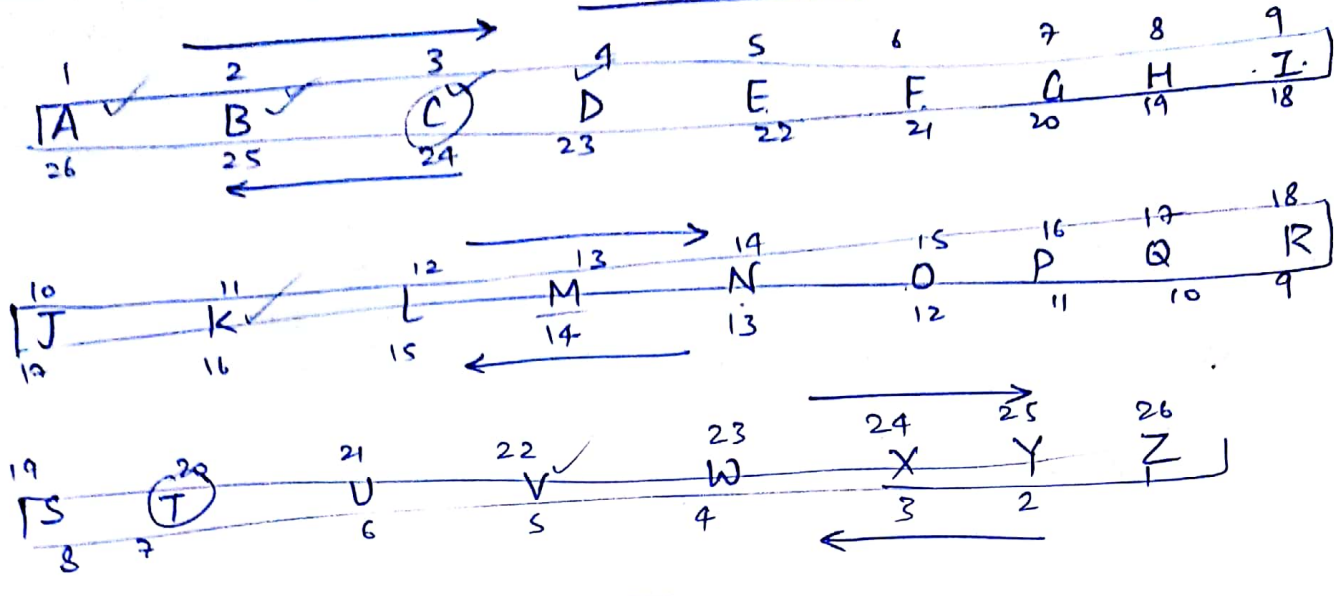 1 2 3 4 5 6 7 8 9
A ✓ B ✓ C ✓ D ✓ E. F. G H . I.
26 25 24 23 22 21 20 19 18
10 11 12 13 14 15 16 17 18
J K ✓ L M N O P Q R
17 16 15 14 13 12 11 10 9
19 20 21 22 23 24 25 26
S T U V ✓ W X Y Z
8 7 6 5 4 3 2 1